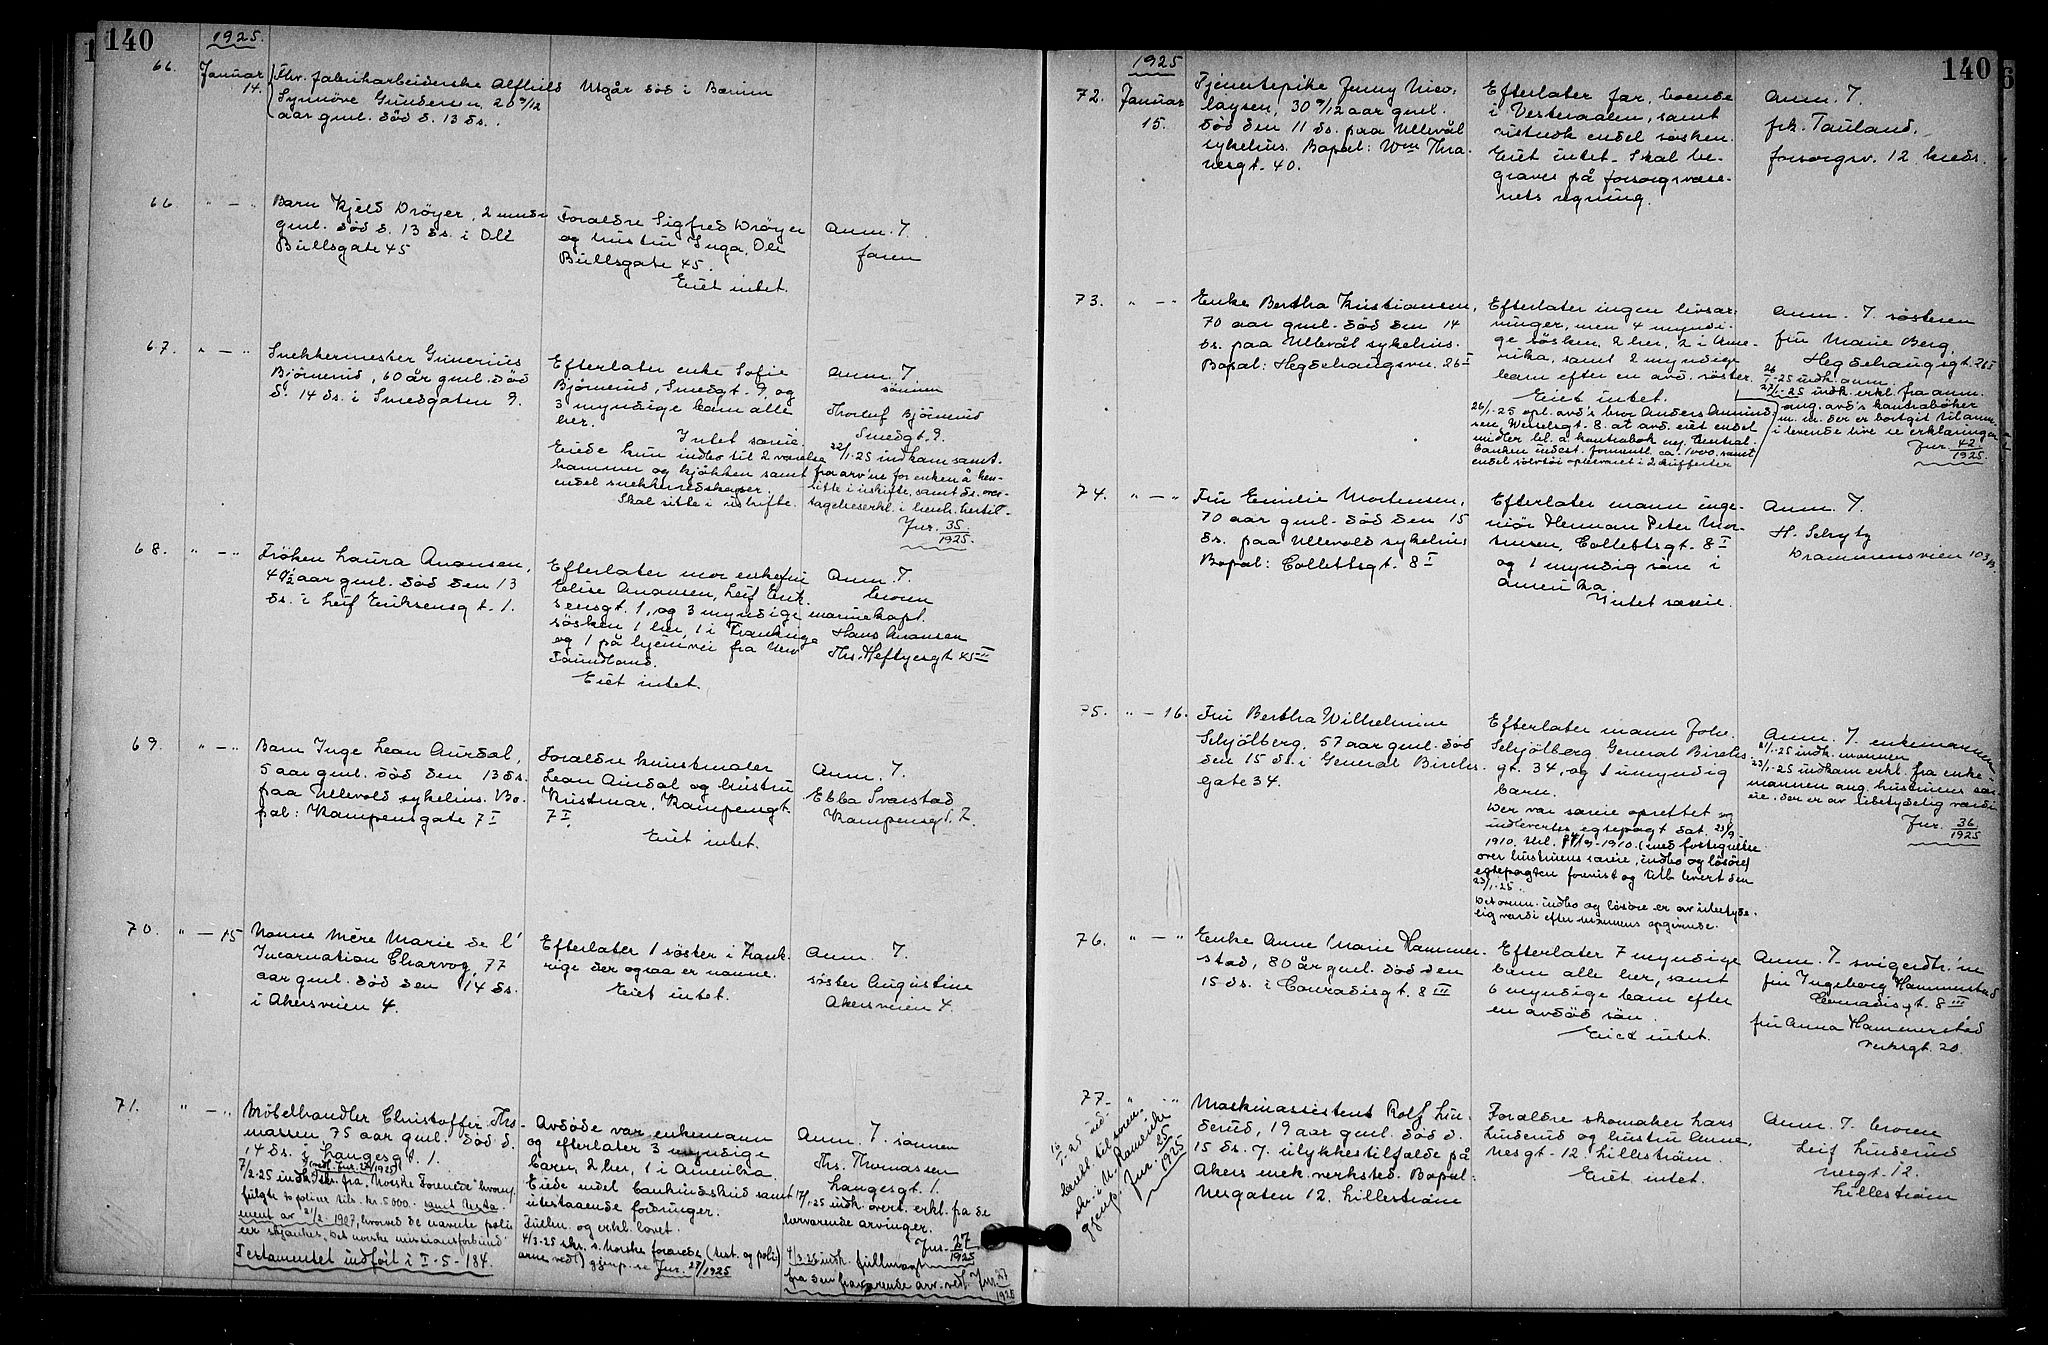 140
1925.
66. Januar 14.
Fhv. fabrikarbeiderske Alfhild
Synnöve Gundersen, 20 9/12
aar gml. död d. 13 ds.
Utgår död i Bærum
66. " — "
Barn Kjeld Dröyer, 2 mndr
gml. död d. 13 ds. i Ole
Bullsgate 45
Foraldre Sigfred Dröyer
og hustru Inga, Ole
Bullsgate 45.
Eiet intet.
Anm. 7.
faren
67. " — "
Snekkermester Gunerius
Björnerud, 60 år gml. död
d. 14 ds. i Smedgaten 9.
Efterlater enke Sofie
Björnerud, Smedgt. 9, og
3 myndige barn alle
her.
Intet særeie.
Eiede kun indbo til 2 værelse
kammer og kjökken samt
endel snekkerredskaper.
Skal sitte i uskifte.
Anm. 7
sönnen
Thorleif Björnerud
Smedgt. 9.
22/1.25 indkom samt.
fra arv'ne for enken å hen-
sitte i uskifte, samt ds. over-
tagelseserkl. i henh. hertil-
Jnr. 35/1925.
68. " — "
Fröken Laura Anonsen,
49 1/2 aar gml. död den 13
ds. i Leif Eriksensgt. 1.
Efterlater mor enkefru
Elise Anonsen, Leif Erik-
sensgt. 1, og 3 myndige
södsken 1 her, 1 i Frankrige
og 1 på hjemvei fra New
Foundland.
Eiet intet.
Anm. 7.
broren
marinekapt.
Hans Anonsen
Ths. Heftyesgt 45 II
69. " — "
Barn Inge Leon Aurdal,
5 aar gml. död den 13 ds.
paa Ullevold sykehus. Bo-
pæl: Kampensgate 7 I
Foraldre kunstmaler
Leon Aurdal og hustru
Kristmar, Kampengt.
7 I.
Eiet intet.
Anm. 7.
Ebba Svarstad
Kampensgt. 7.
70. " — 15
Nonne Mère Marie de l'
Incarnation Charvoz, 77
aar gml. död den 14 ds.
i Akersveien 4.
Efterlater 1 söster i Frank-
rige der ogsaa er nonne.
Eiet intet.
Anm. 7.
söster Augustine
Akersveien 4.
71. " — "
Möbelhandler Christoffer Tho-
massen 75 aar gml. död d.
14 ds. i Langesgt. 1.
(vedl. Jnr. 27/1925)
7/2-25 indk. skr. fra "Norske Forenede" hvormed
fulgte to poliser tils. kr. 5000. samt testa-
ment av 21/2 1907, hvorved de nævnte poli-
cer skjænkes Det norske missionsforbund
Testamentet indfört i I-5-184.
Avdöde var enkemann
og efterlater 3 myndige
barn, 2 her, 1 i Amerika.
Eiede endel bankindskud samt
utestaaende fordringer.
Fullm. og erkl. lovet.
4/3-25 skr. t. Norske forenede (test. og poli)
erne vedl.) gjenp. se Jnr. 27/1925
Anm. 7. sönnen
Ths. Thomassen
Langesgt. 1.
17/1.25 indk. overt. erkl. fra de
herværende arvinger.
Jnr. 27/1925
4/3-25 indk. fullmagt
fra den fraværende arv. vedl. Jnr. 27/1925
140
1925
72. Januar 15.
Tjenestepike Jenny Nico-
laysen, 30 9/12 aar gml.
död den 11 ds. paa Ullevål
sykehus. Bopæl: Wm Thra-
nesgt. 40.
Efterlater far, boende
i Vesteraalen, samt
vistnok endel søsken.
Eiet intet. Skal be-
graves på forsorgsvæse-
nets regning.
Anm. 7.
frk. Tauland,
forsorgsv. 12 kreds.
73. " — "
Enke Bertha Kristiansen,
70 aar gml. död den 14
ds. paa Ullevål sykehus.
Bopæl: Hegdehaugsvn. 26 I
Efterlater ingen livsar-
vinger, men 4 myndi-
ge sösken, 2 her, 2 i Ame-
rika, samt 2 myndige
barn efter en avd. söster.
Eiet intet.
26/1-25 opl. avd's bror Anders Amund-
sen, Wesselsgt. 8. at avd. eiet endel
midler bl. a. kontrabok og Central-
banken indest. formentl. ca. 1000. samt
endel sölvtöi opbevaret i 2 kufferter
Anm. 7. søsteren
fru Marie Berg,
Hegdehaugsgt. 26 I
26/1-25 indk. anm.
27/1-25 indk. erkl. fra anm.
ang. avd's kontraböker
m. m. der er bortgit til anm.
i levende live se erklæringen
Jnr. 42/1925.
74. " — "
Fru Emilie Mortensen,
70 aar gml. död den 15
ds. paa Ullevold sykehus
Bopæl: Collettsgt. 8 I
Efterlater mann inge-
niör Herman Peter Mor-
tensen, Collettsgt. 8 I
og 1 myndig sön i
Amerika.
Intet særeie.
Anm. 7.
H. Schytz
Drammensveien 103 B.
75. " — 16.
Fru Bertha Wilhelmine
Schjölberg, 57 aar gml. död
den 15 ds. i General Birchs
gate 34.
Efterlater mann Johs.
Schjölberg General Birchs
gt. 34, og 1 umyndig
barn.
Der var særeie oprettet og
indlevertes egtepagt dat. 23/9
1910, tnl. 24/9-1910. (med fortegnelse
over hustruens særeie, indbo og lösöre)
egtepagten forevist og tilb. levert den
23/1.25.
Det ovenn. indbo og lösöre er av ubetyde-
lig værdi efter mannens opgivende.
Anm. 7. enkemannen
21/1.25 indk. mannen
23/1.25 indkom erkl. fra enke-
mannen ang. hustruens sær-
eie. der er av ubetydelig værdi
Jnr. 36/1925
76. " — "
Enke Anne Marie Hammer-
stad, 80 år gml. död den
15 ds. i Conradisgt. 8 III
Efterlater 7 myndige
barn alle her, samt
6 myndige barn efter
en avdöd sön.
Eiet intet.
Anm. 7. svigerdtr.'ne
fru Ingeborg Hammerstad
Conradisgt. 8 III
fru Anna Hammerstad
Verksgt. 20.
77. " "
Maskinassistent Rolf Lin-
derud, 19 aar gml. död d.
15 ds. v. ulykkestilfælde på
Akers mek. verksted. Bopæl:
Nesgaten 12, Lilleström
Foraldre skomaker Lars
Linderud og hustru Anne,
Nesgt. 12. Lilleström.
Eiet intet.
Anm. 7. broren
Leif Linderud
Nesgt. 12.
Lilleström
16/1-25 ind-
beret. til soren-
skr. i N. Romerike
gjenp. Jnr. 25/1925